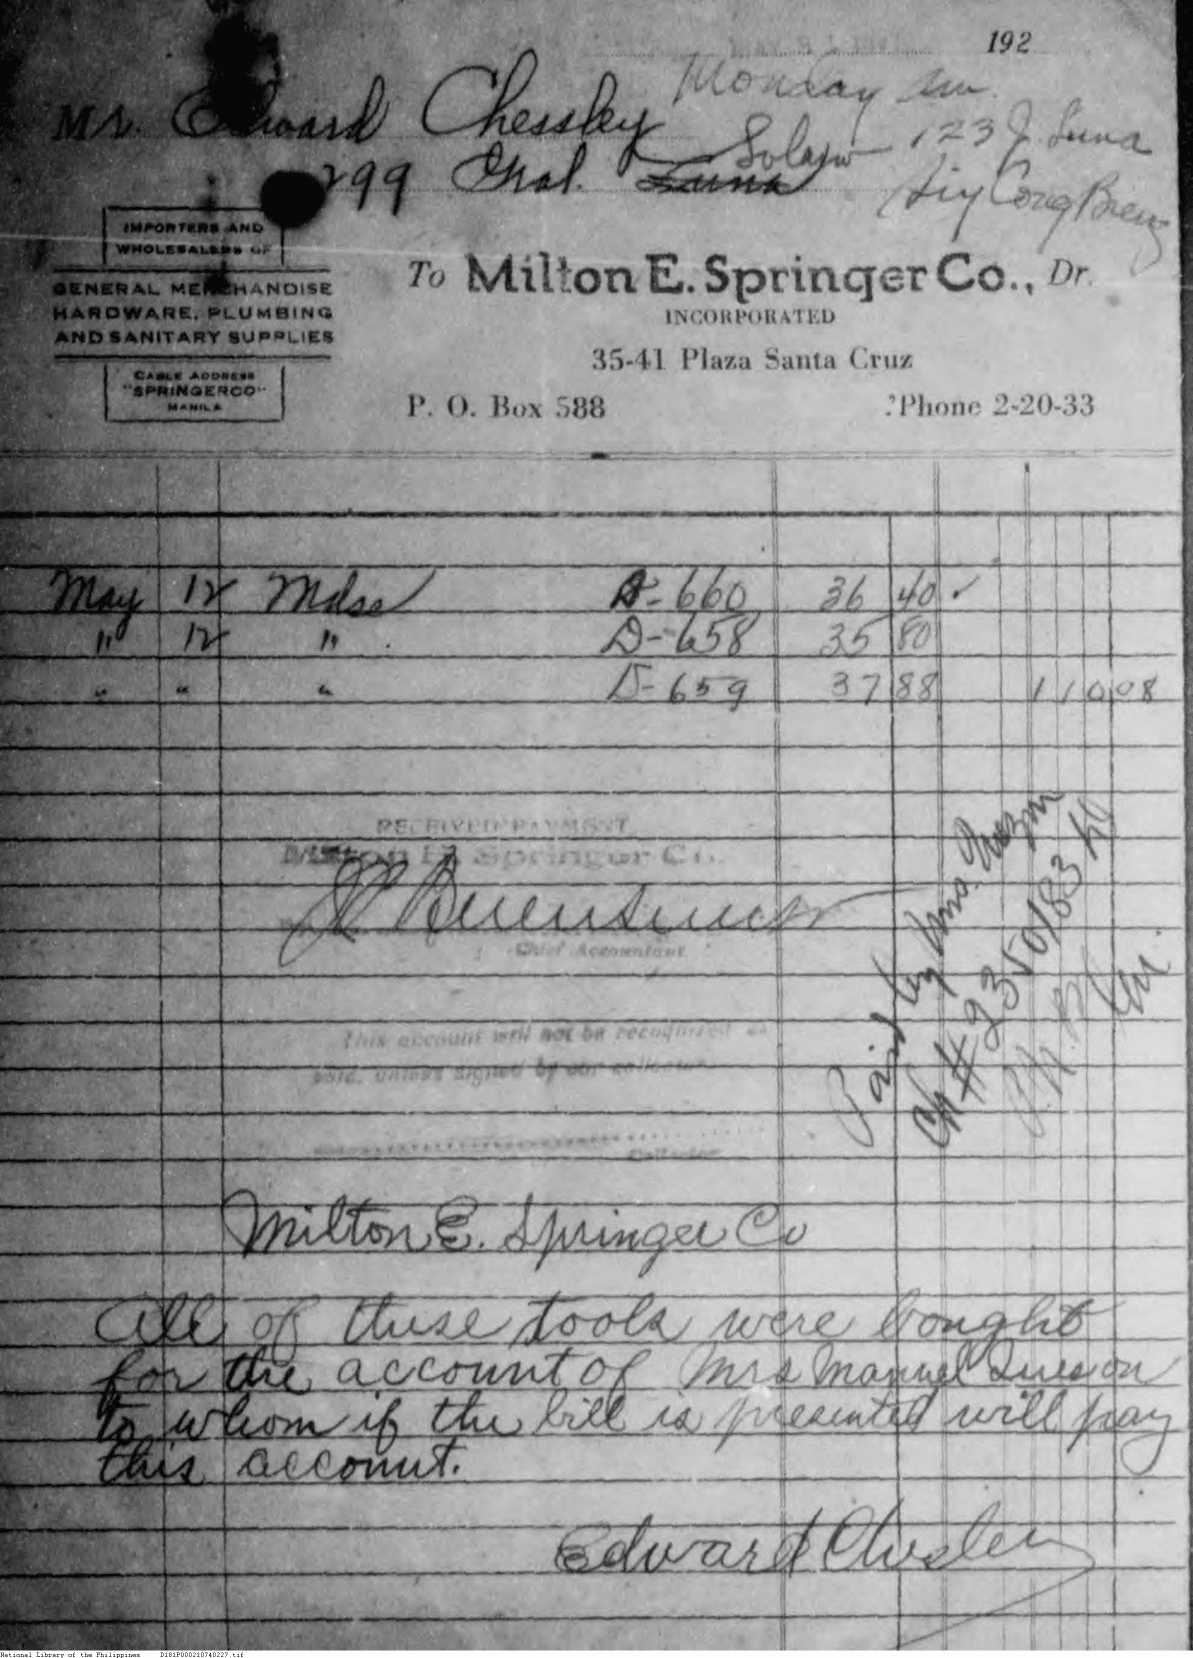 192
Monday am.
Mr. Edward Chessley
Solano 123 J. Luna
299 Gral. Luna
IMPORTERS AND
WHOLESALERS OF
GENERAL MERCHANDISE
HARDWARE, PLUMBING
AND SANITARY SUPPLIES
CABLE ADDRESS
"SPRINGERCO"
MANILA
To Milton E. Springer Co., Dr.
INCORPORATED
35-41 Plaza Santa Cruz
P. O. Box 588 'Phone 2-20-33
May 12 Mdse D-660 36 40 ✓
" 12 " D-658 35 80
" " " D-659 37 88 110 08
RECEIVED PAYMENT
Milton E. Springer Co.
Chief Accountant
This account will not be recognized as
paid, unless signed by our collector
Collector
Paid by Mrs. Quezon
Ch # 2350183
Milton E. Springer Co
All of these tools were bought
for the account of Mrs Manuel Quezon
to whom if the bill is presented will pay
this account.
Edward Chesley
National Library of the Philippines D181P000210740227.tif